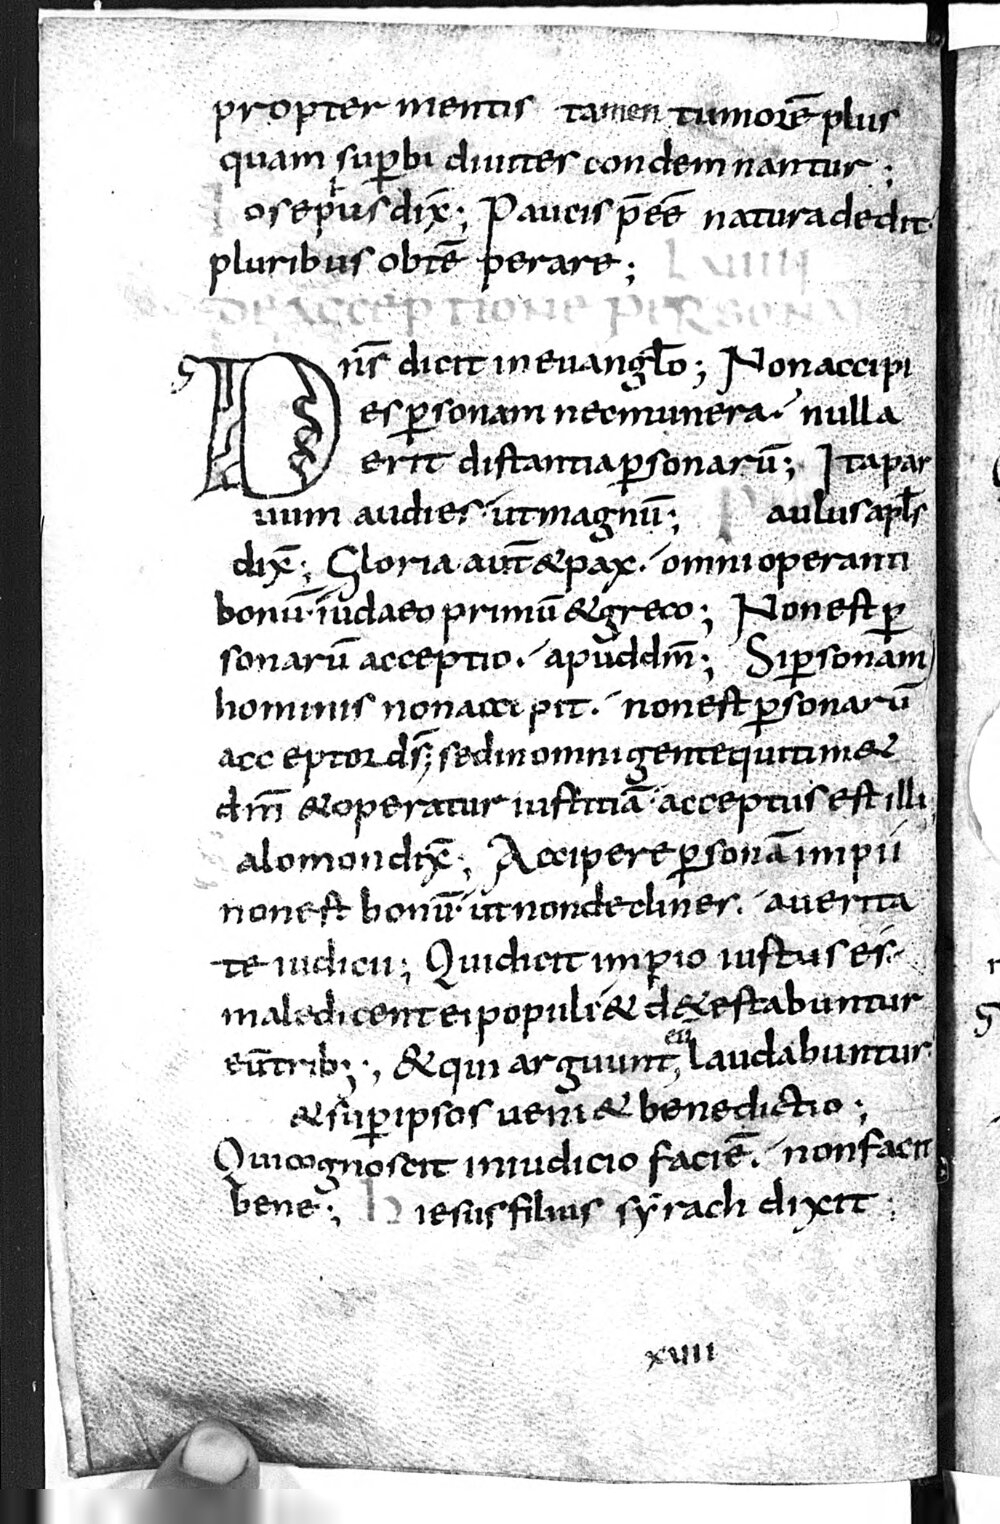 propter mentis tamen tumorē plus
quam sup̄bi diuites condemnantur ;
Iosepus dix̄ ; Paucis p̄ēē natura dedit·
pluribus obtēperare ; LVIIII
DE ACCEPTIONE PERSONAR
Dn̄s dicit in euangl̄o ; Non accipi
es p̄sonam nec munera· nulla
erit distantia p̄sonarū ; Ita par
uum audies· ut magnū ; Paulus apl̄s
dix̄ ; Gloria aut̄ & pax· omni operanti
bonū· iudaeo primū & greco ; Non est p̄
sonarū acceptio· apud dm̄ ; Si p̄sonam
hominis non accipit· non est p̄sonarū
acceptor ds̄ ; sed in omni gente qui tim&
dm̄ & operatur iustitiā· acceptus est illi
Salomon dix̄ ; Accipere p̄sonā impii
non est bonū· ut non declines· a uerita
te iudicii ; Qui dicit impio iustus es·
maledicent ei populi· & d&estabuntur
eū trib; ; & qui arguunt eū laudabuntur·
& sup̄ ipsos ueni& benedictio ;
Qui cognoscit in iudicio faciē· non facit
bene ; Hiesus filius syrach dixit ;
xviii